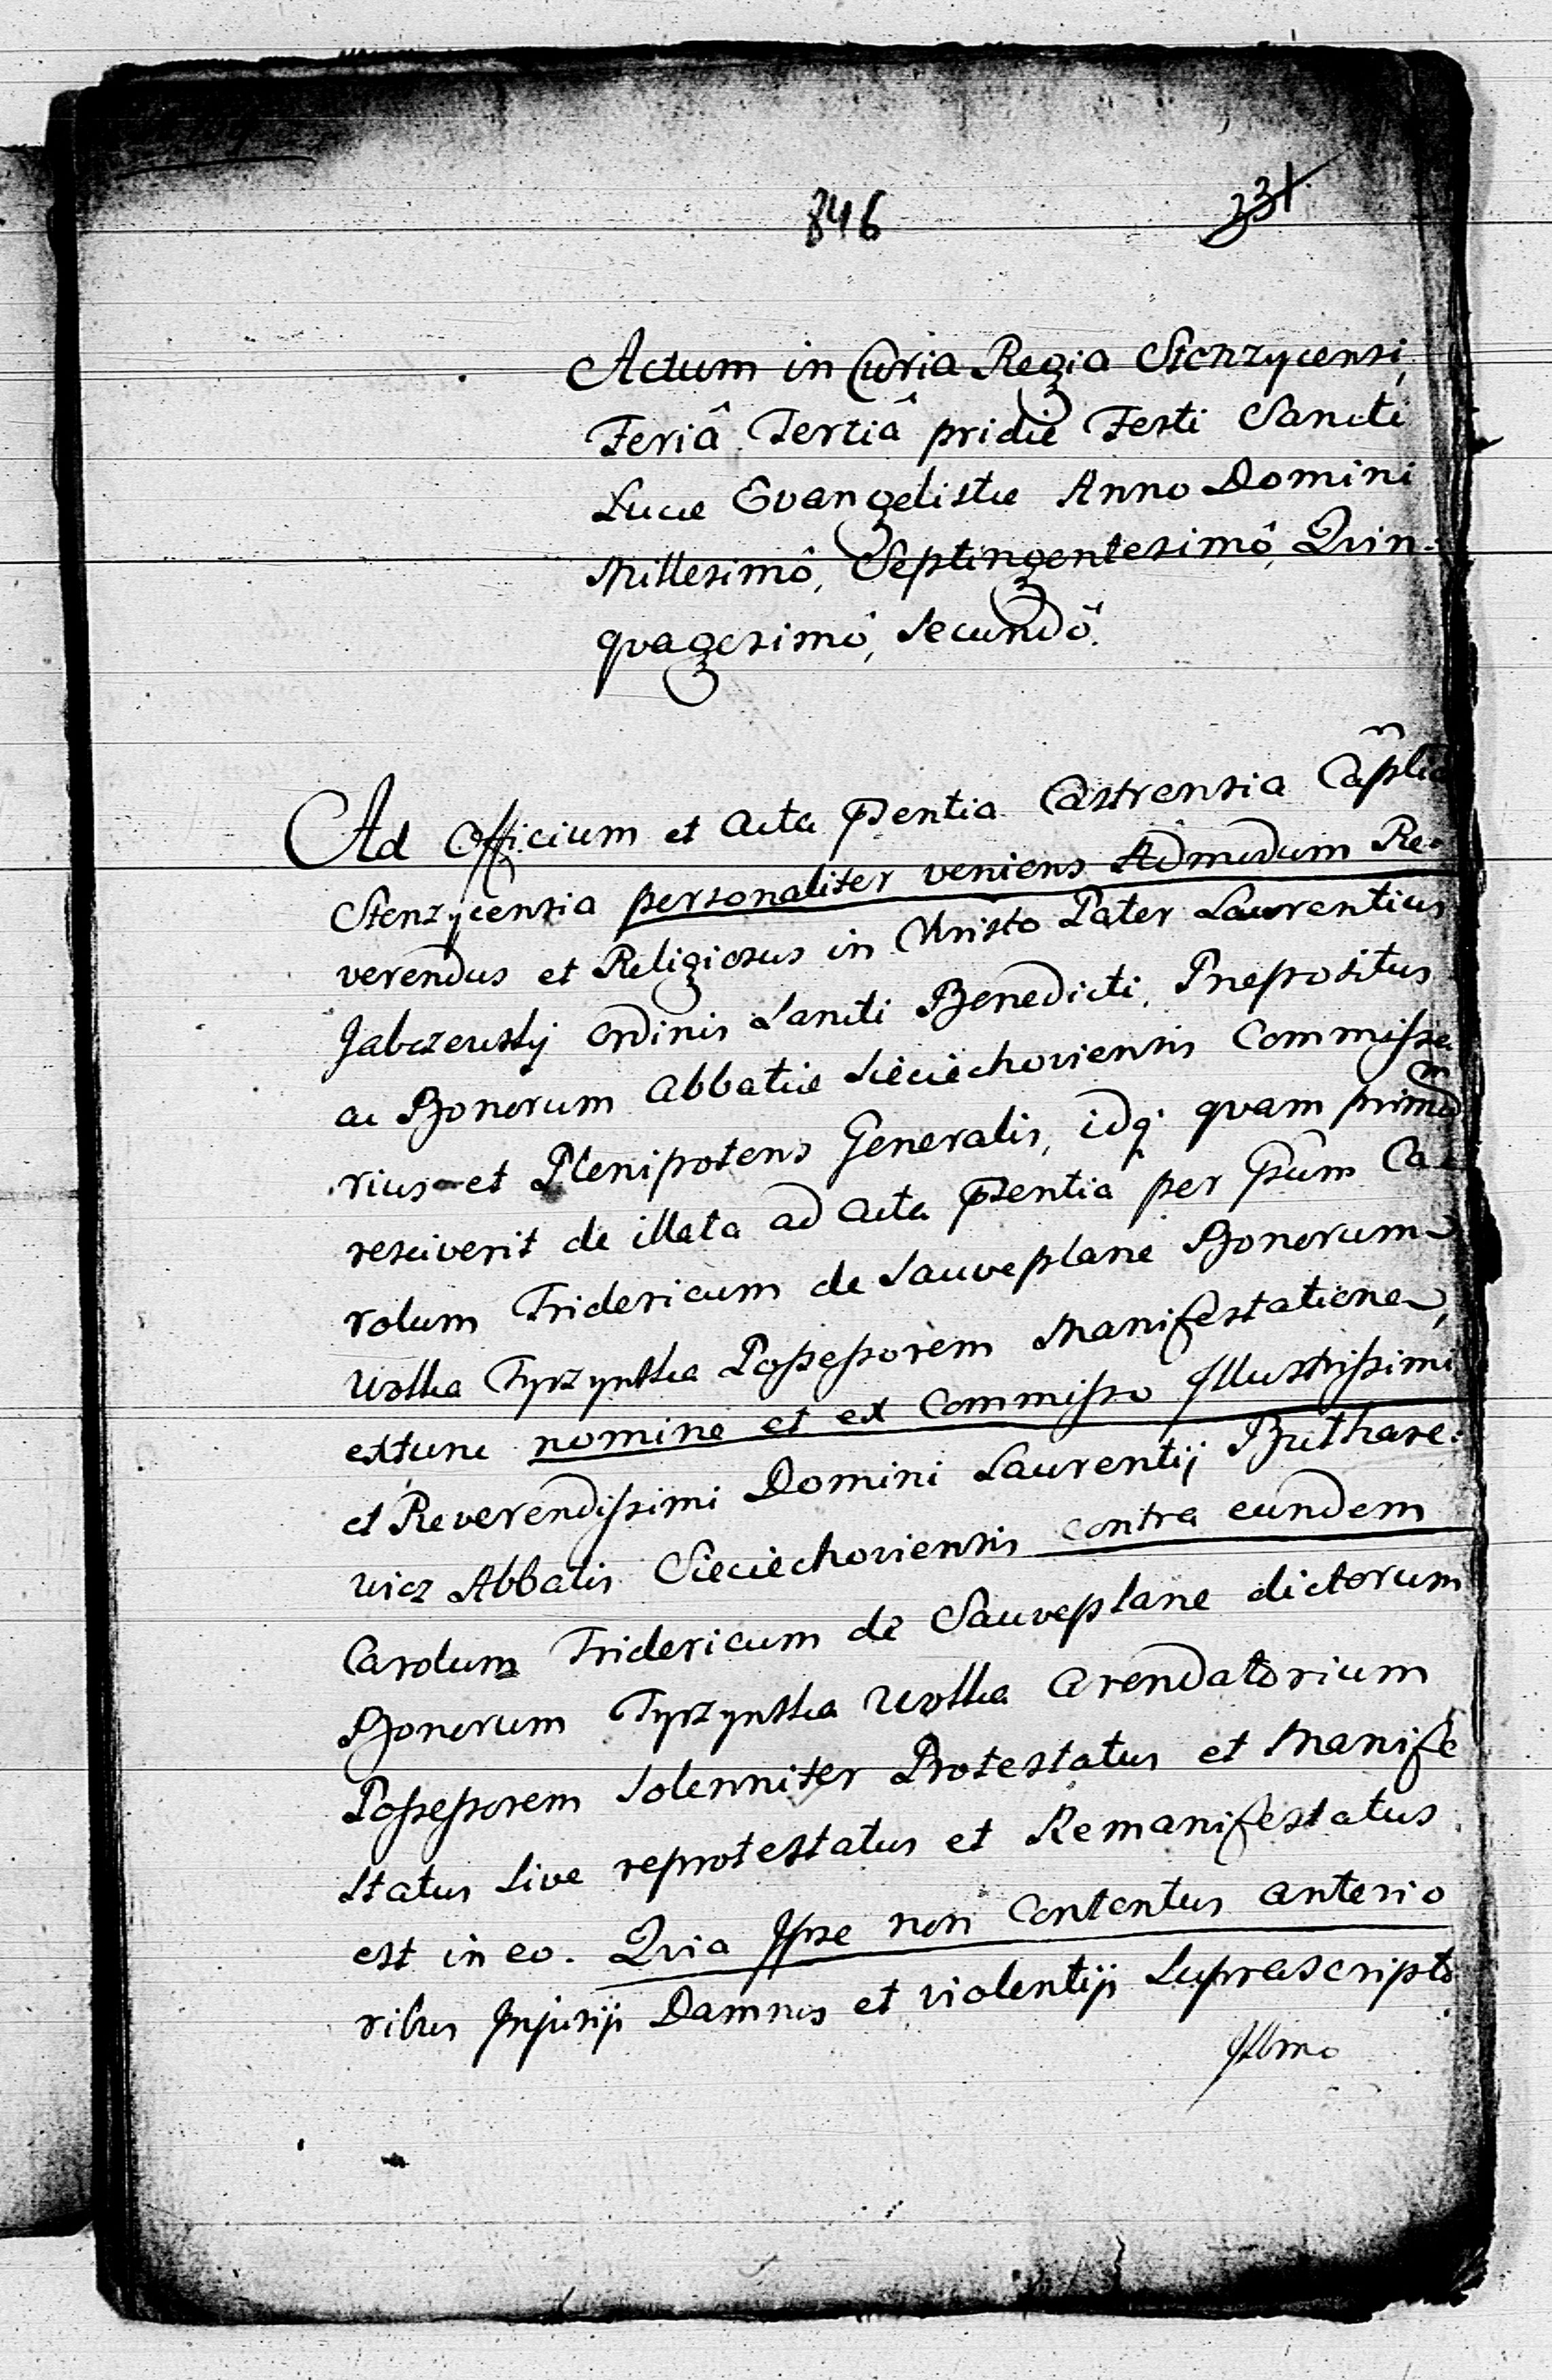 846
331
Actum in Curia Regia Stenzycensi,
Feriâ Tertiâ pridie Festi Sancti
Lucæ Evangelistæ Anno Domini
Millesimô, Septingentesimô, Qvin-
qvagesimô, Secundô.
Ad Officium et Acta Pñentia Castrensia Capitlia
Stenzycensia personaliter veniens Admodum Re-
verendus et Religiosus in Christo Pater Laurentius
Jabczewskj Ordinis Sancti Benedicti, Præpositus
ac Bonorum Abbatiæ Sieciechoviensis Commissa
rius et Plenipotens Generalis, idq; qvam primũ
resciverit de illata ad Acta Pñentia per Gñsum Ca
rolum Fridericum de Sauveplane Bonorum
Wolka Tyrzynska Possessorem Manifestatione,
extunc nomine et ex Commisso Illustrissimi
et Reverendissimi Domini Laurentij Buthare-
wicz Abbatis Sieciechoviensis contra eundem
Carolum Fridericum de Sauveplane dictorum
Bonorum Tyrzynska Wolka Arendatorium
Possessorem Solenniter Protestatus et Manife
status sive reprotestatus et Remanifestatus
est in eo. Qvia Ipse non Contentus anterio
ribus Injurijs Damnis et violentijs Suprascripto
Illmo